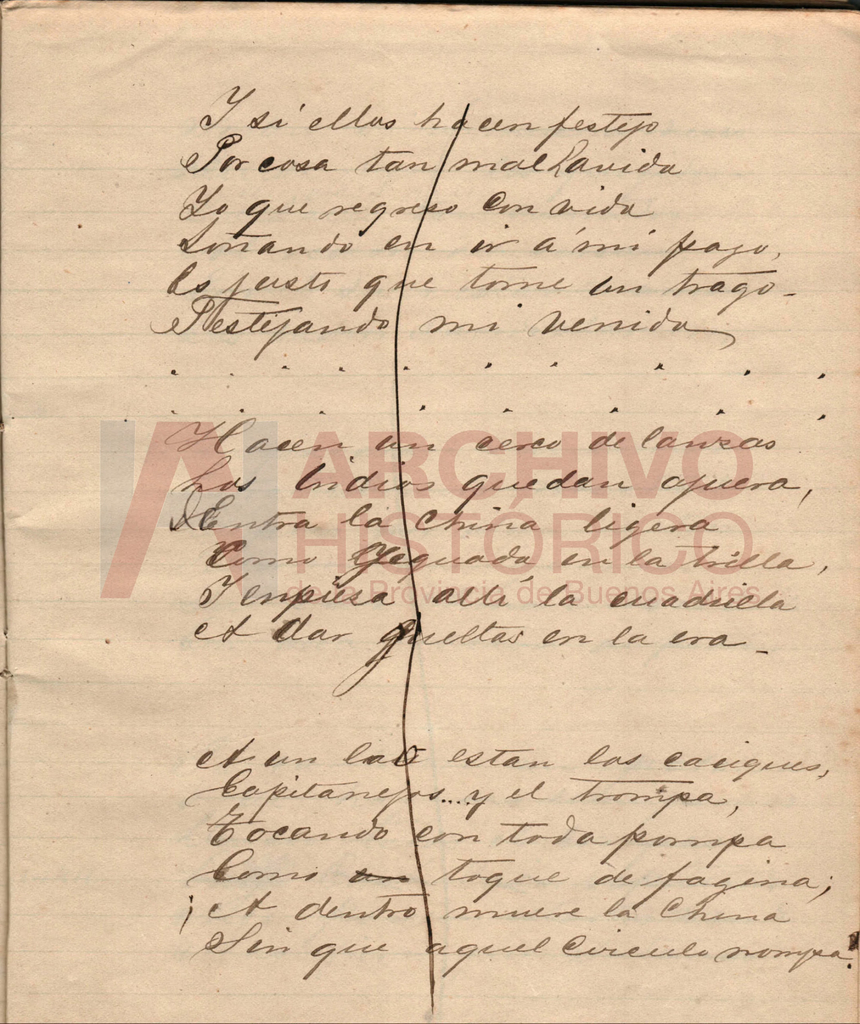 Y si ellos hacen festejo
Por cosa tan malhavida
Yo que regreso con vida
Soñando en ir á mi pago,
Es justo que tome un trago -
Festejando mi venida
. . . . . . . . . .
. . . . . . . . . .
Hacen un cerco de lanzas
Los Indios quedan ajuera,
Dentra la China ligera
Como yeguada en la trilla,
Y enpiesa allí la cuadrilla
A dar gueltas en la era -
A un lao estan los caciques,
Capitanejos....y el trompa,
Tocando con toda pompa
Como un toque de fagina;
¡A dentro muere la China
Sin que aquel circulo rompa!
ARCHIVO
HISTÓRICO
de la Provincia de Buenos Aires